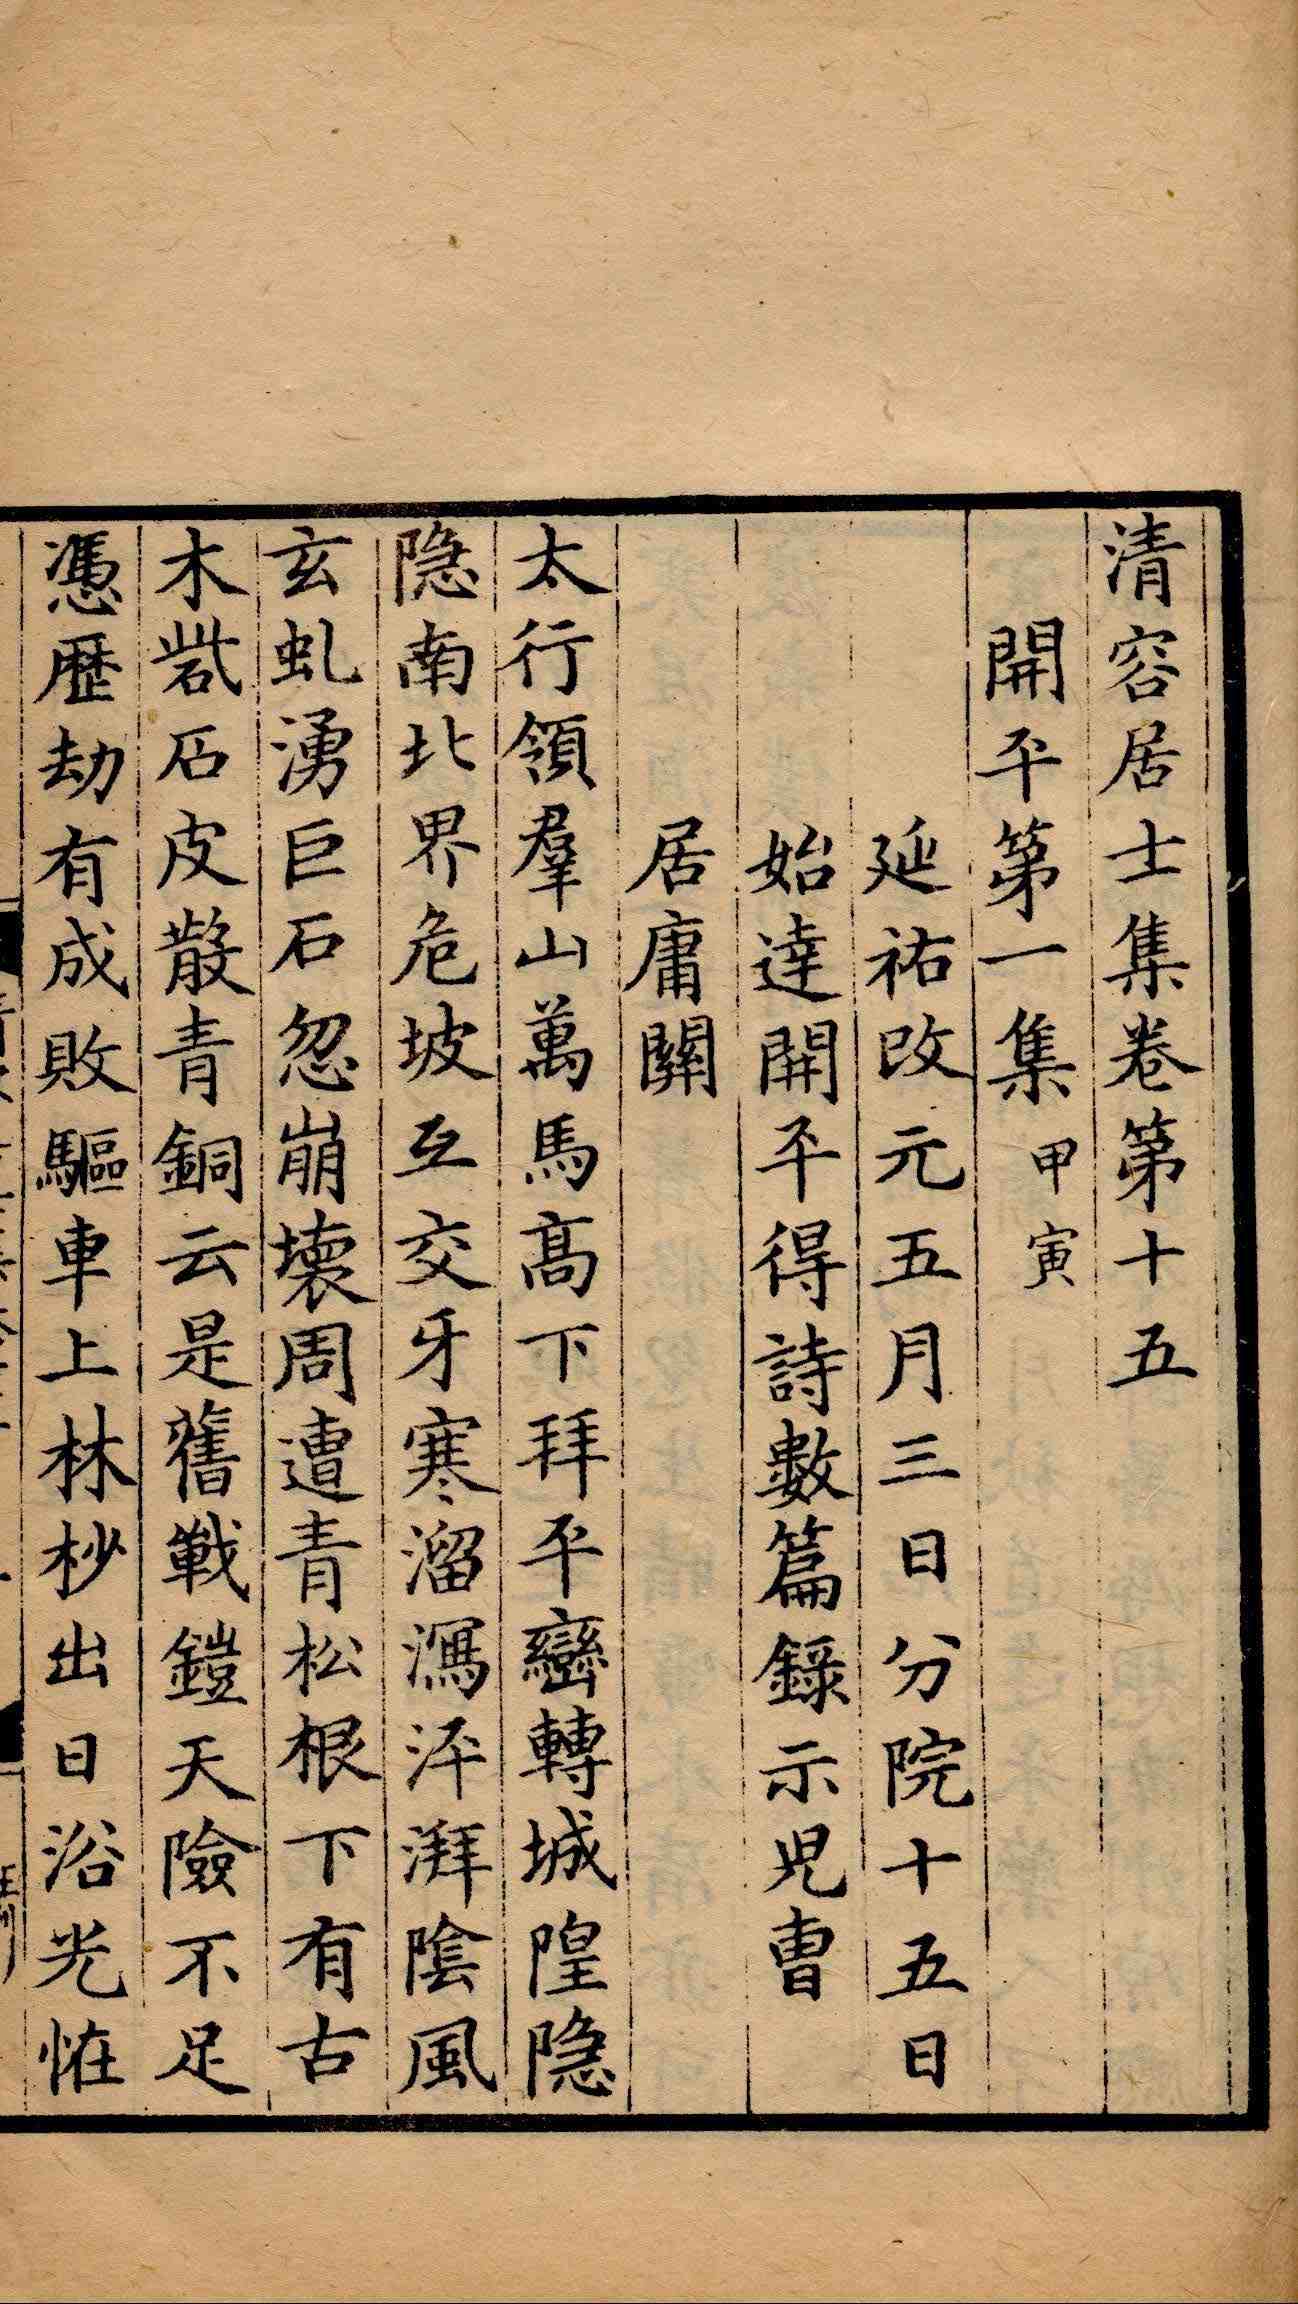 清容居士集卷第十五
開平第一集甲寅
延祐改元五月三日分院十五日
始達開平得詩數篇錄示兒曹
居庸關
太行領羣山萬馬高下拜平巒轉城隍隐
隐南北界危坡互交牙寒溜瀉泙湃陰風
玄虬湧巨石忽崩壞周遭青松根下有古
木砦石皮散青銅云是舊戰鎧天險不足
憑歷劫有成敗驅車上林杪出日浴光恠